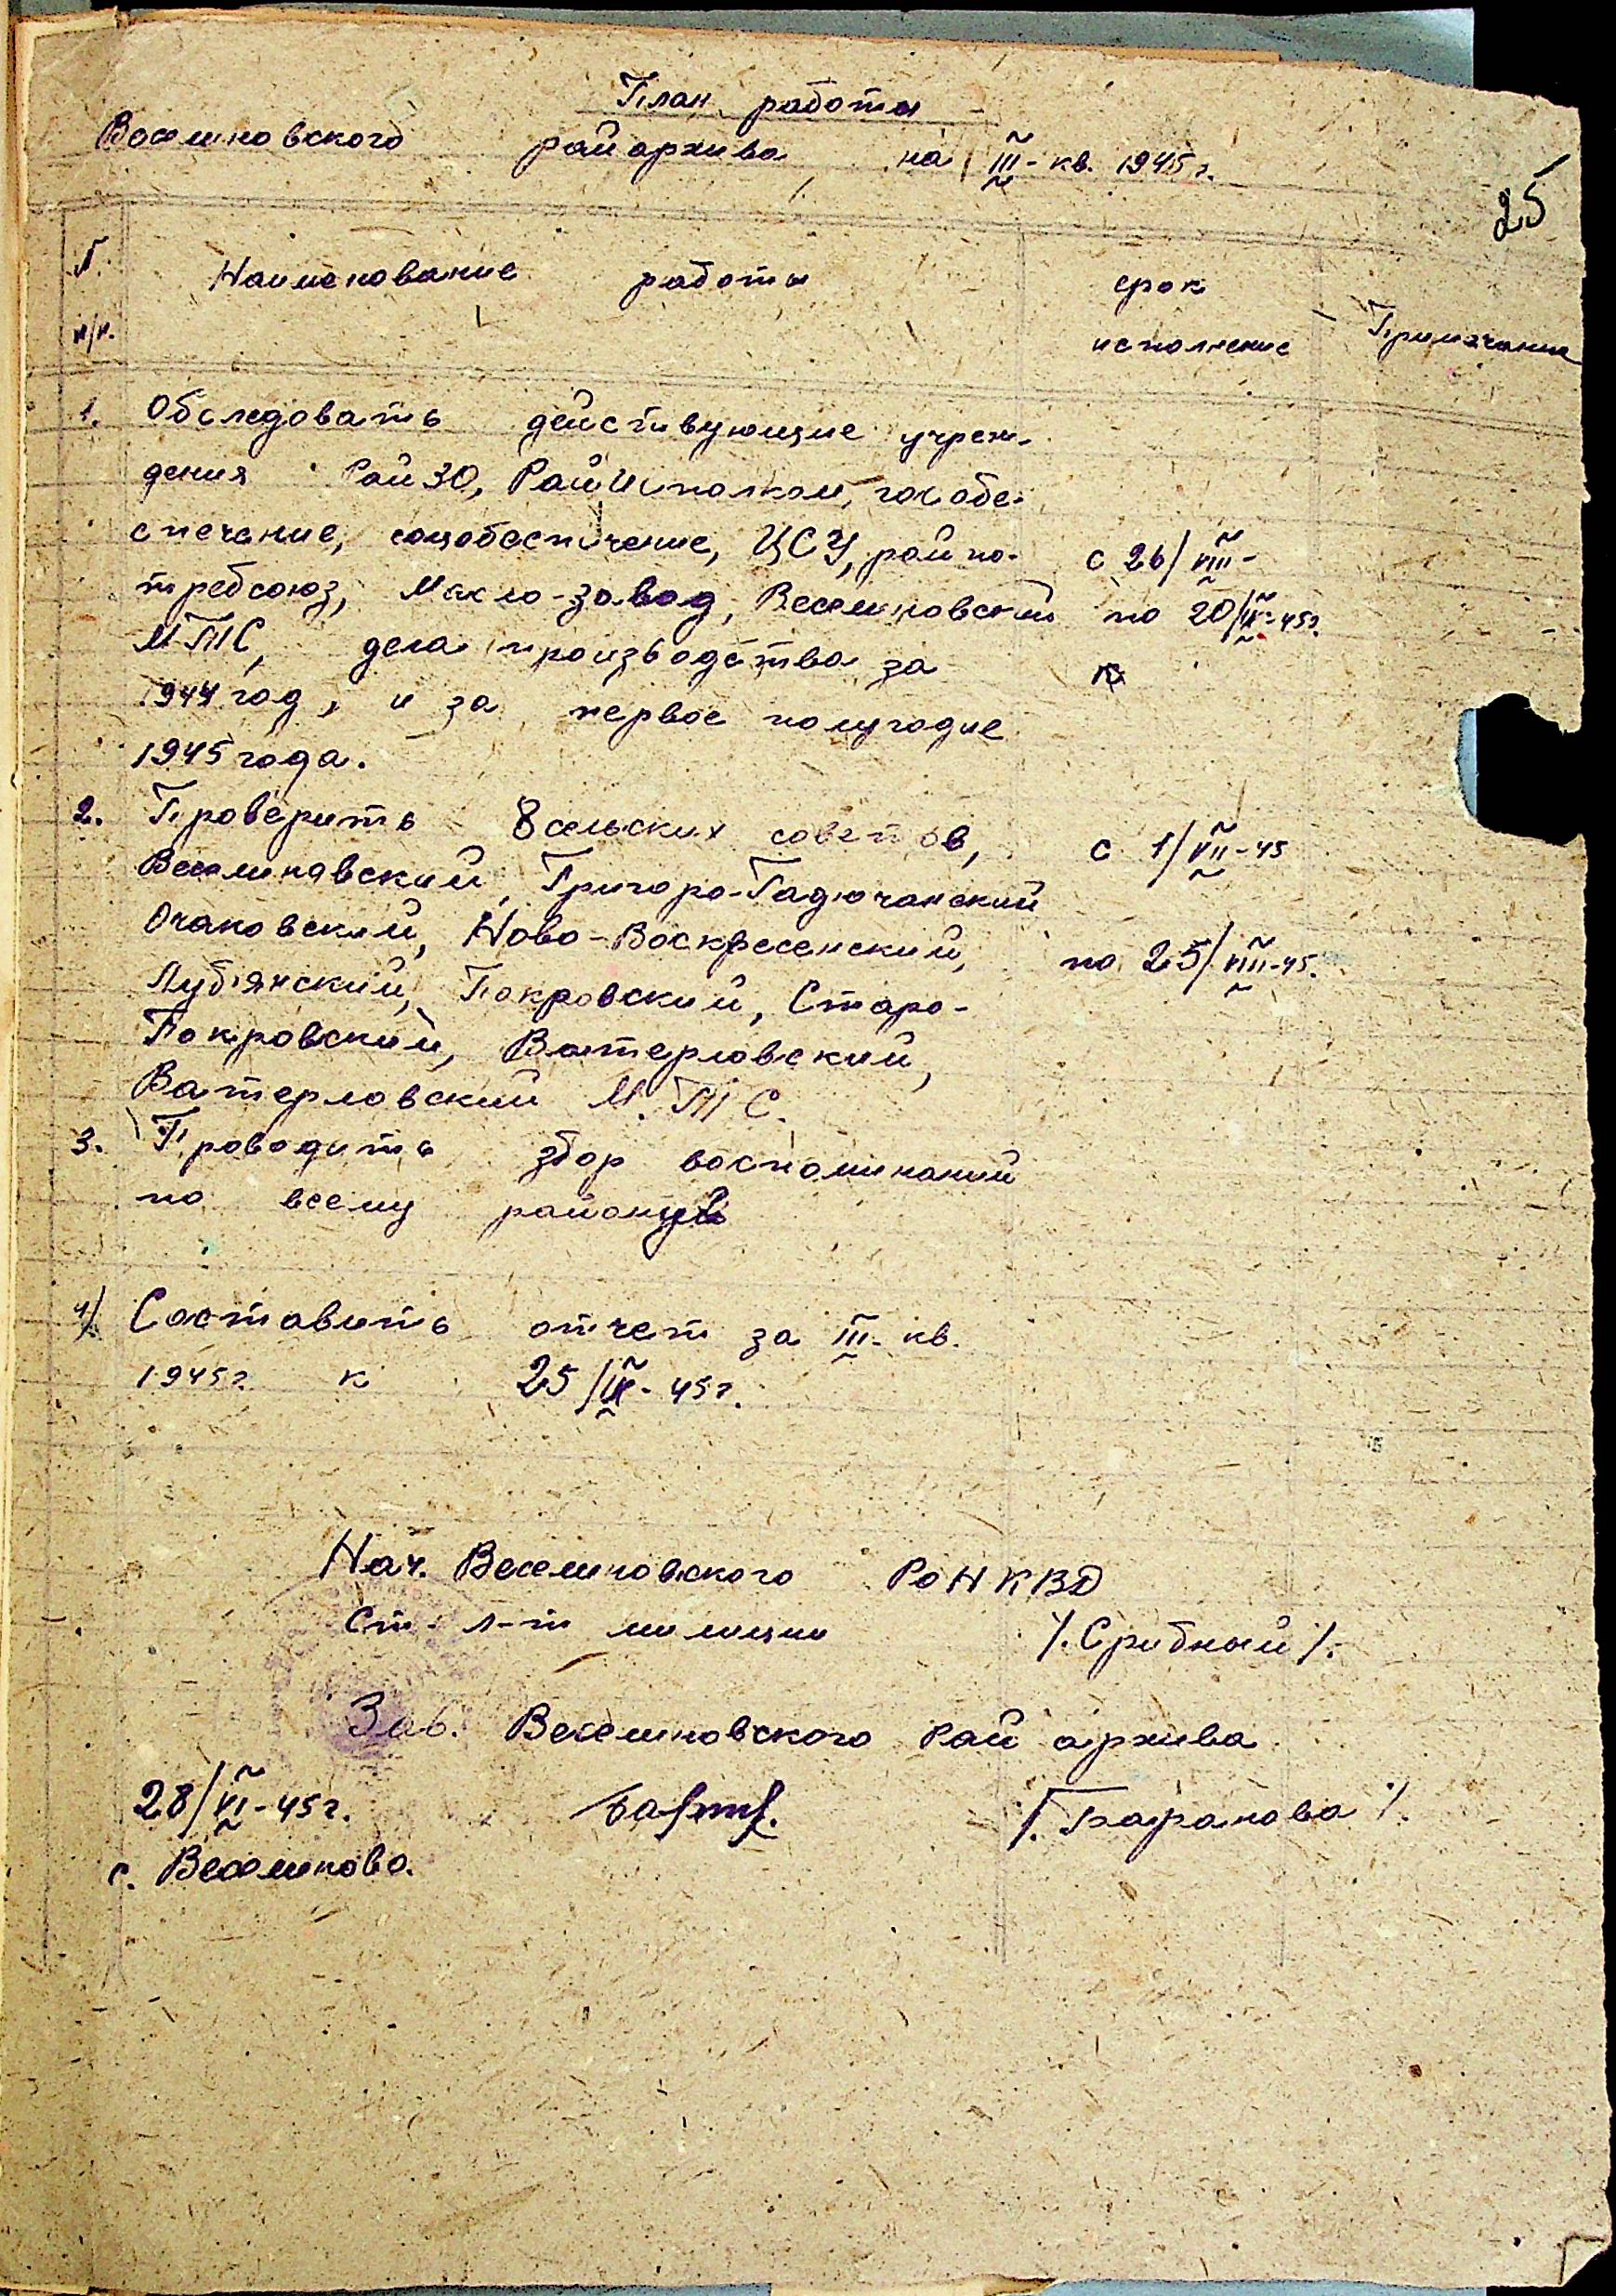 План работы
Веселиновского райархива на III - кв. 1945 г.
25
№ Наименование работы срок
п/п. исполнение Примечание
1. Обследовать действующие учреж-
дения Рай ЗО, РайИсполком, гособе-
спечение, соцобеспечение, ЦСУ, райпо- с 26/VIII-
требсоюз, Масло-завод, Веселиновский по 20/IX-45г.
МТС, дела производства за
1944 год, и за первое полугодие
1945 года.
2. Проверить 8 сельских советов, с 1/VII-45
Веселиновский, Григоро-Гадючанский
Очаковский, Ново-Воскресенский, по 25/VIII-45.
Луб'янский, Покровский, Старо-
Покровский, Ватерловский,
Ватерловский М.ТС.
3. Проводить збор воспоминаний
по всему району
4) Составить отчет за III- кв.
1945г. к 25/IX- 45г.
Нач. Веселиновского РоНКВД
Ст. л-т милиции /. Срибный /.
Зав. Веселиновского Рай архива
28/VI-45г. /. Баранова /.
с. Веселиново.